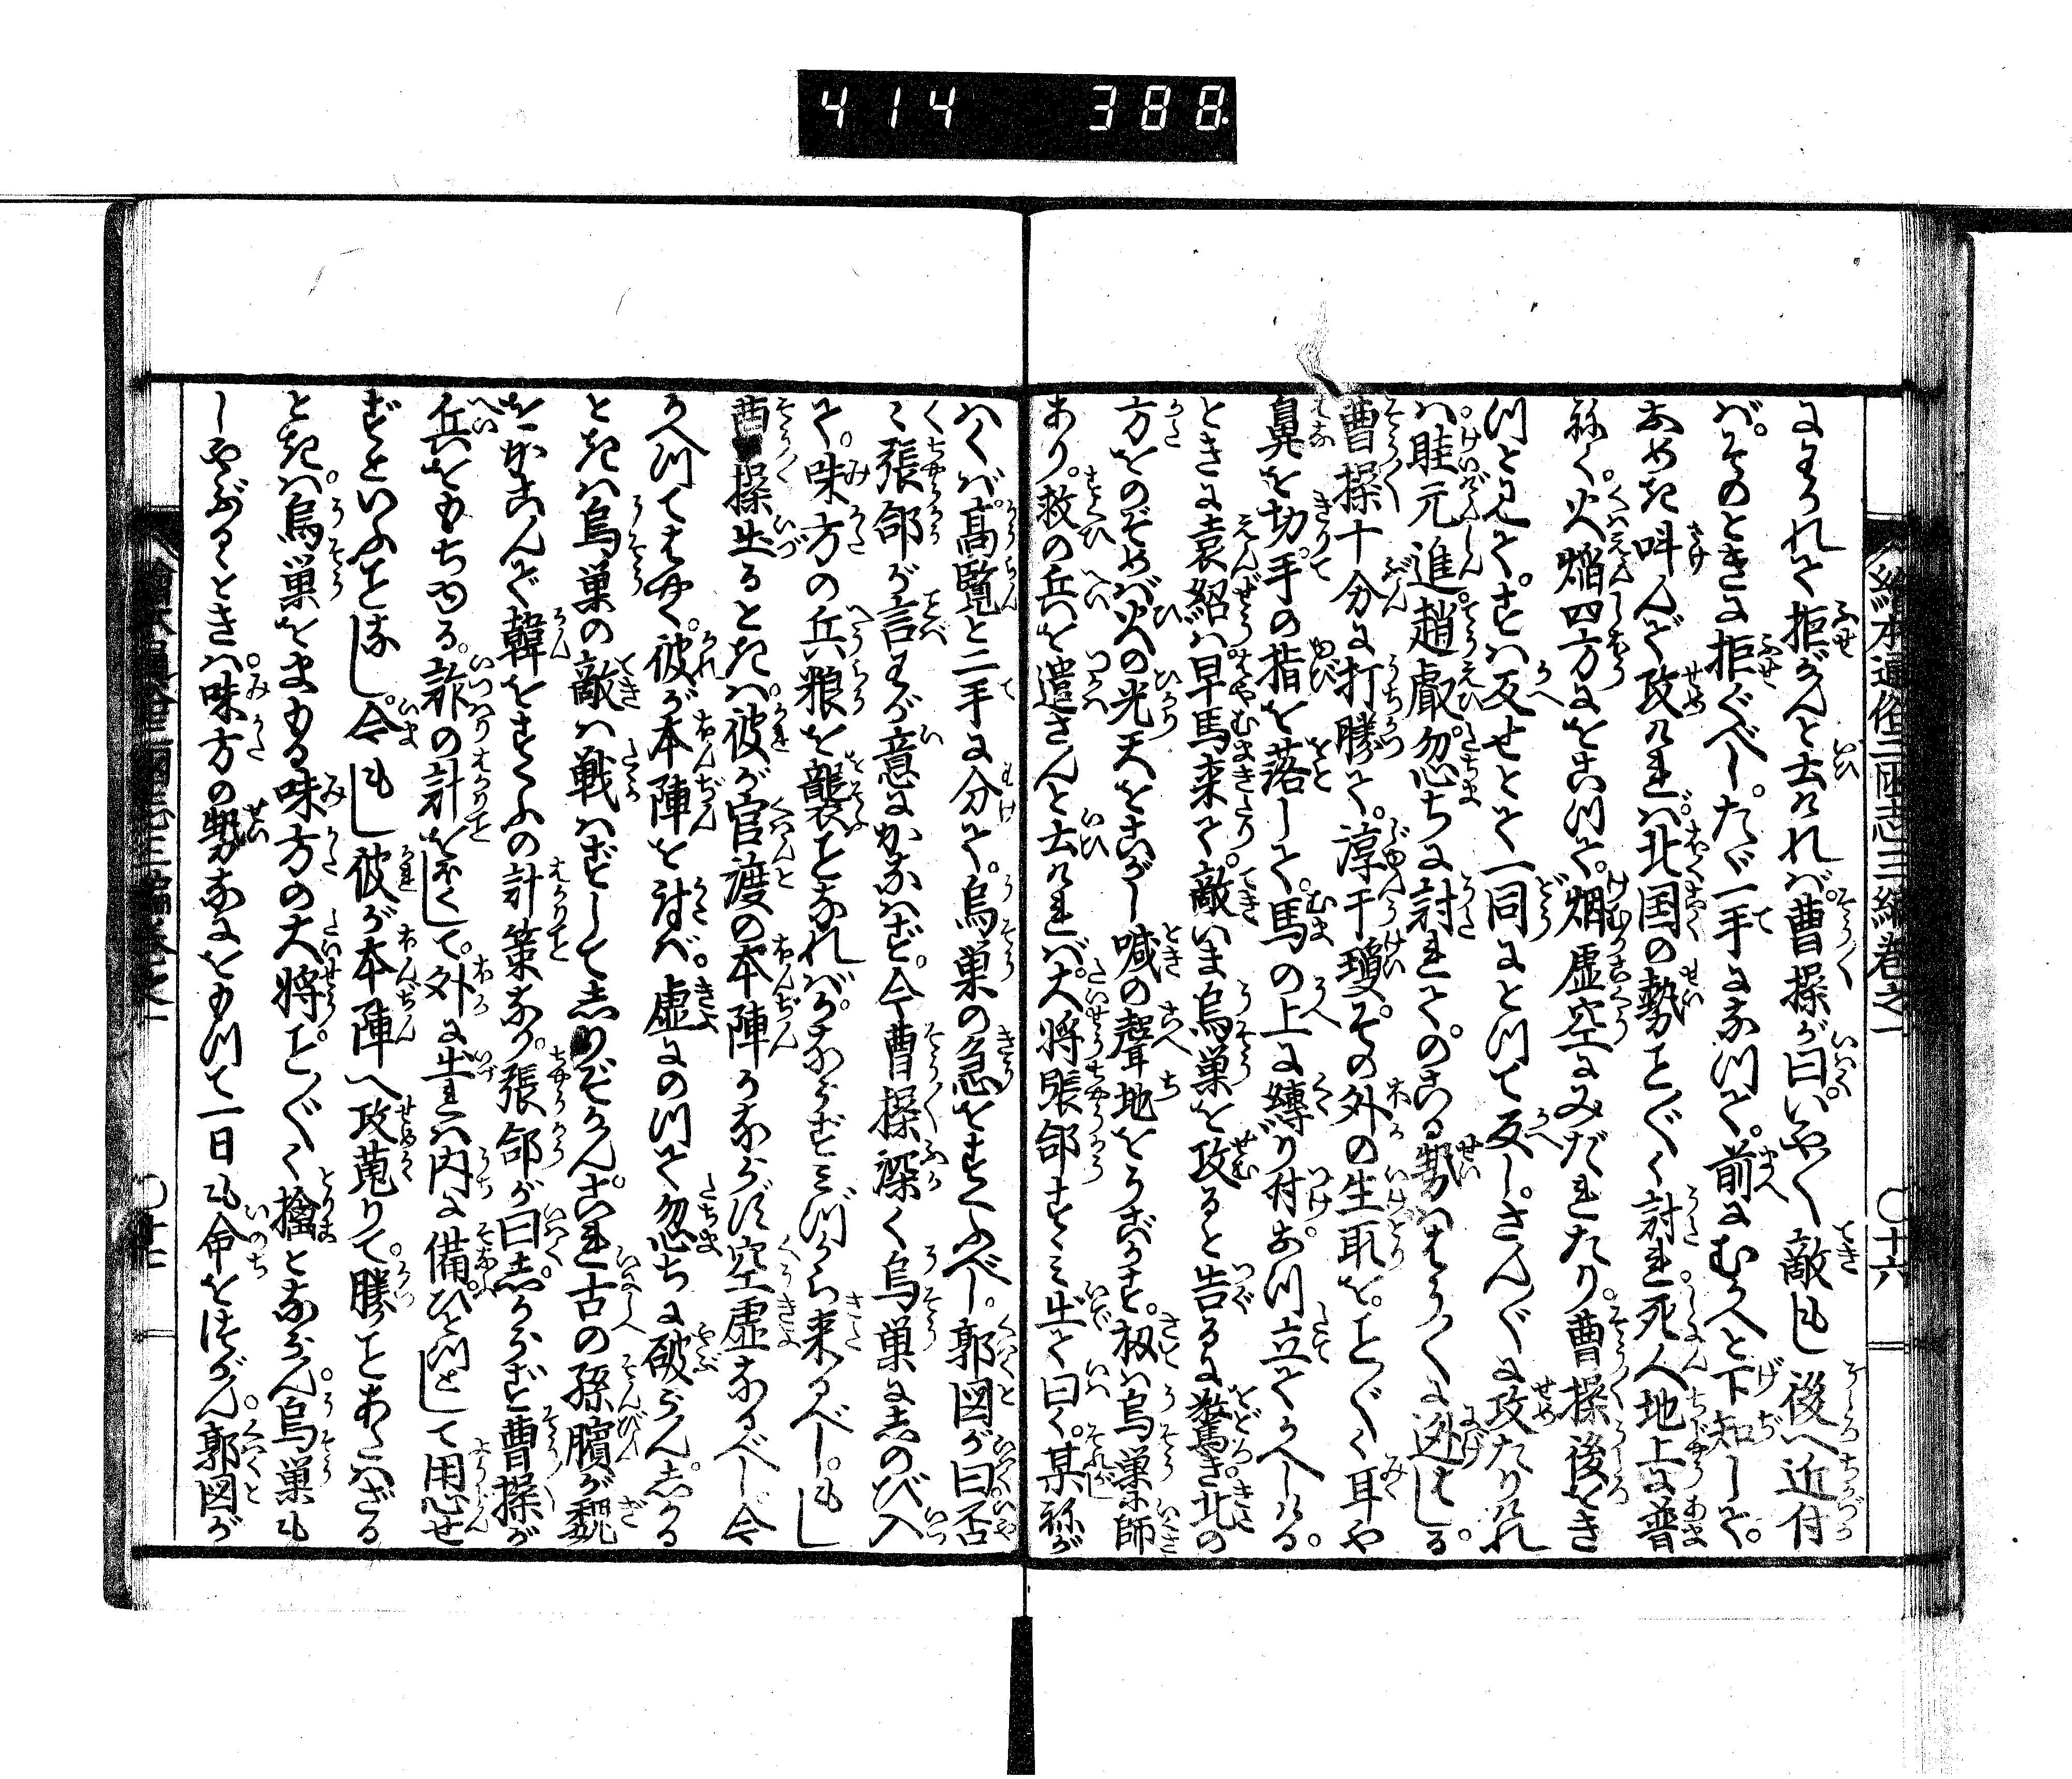 414 388
絵本通俗三国志三編巻之一 〇十六
にわかれて拒がんと云けれバ。曹操が曰。いや〳〵敵もし後へ近付
バ。そのときに拒ぐべし。たゞ一手になつて。前にむかへと下知して。
おめき叫んで攻けれバ。北国の勢こと〴〵く討れ死人地上に普
ねく。火焔四方にをこつて。烟虚空にみだれたり。曹操後をき
つと見て。すハ反せとて一同にとつて反し。さん〴〵に攻たりけれ
バ。眭元進。趙叡。忽ちに討れて。のこる勢はちり〴〵に迯はしる。
曹操十分に打勝て。淳于瓊。その外の生取を。こと〴〵く耳や
鼻を切。手の指を落して。馬の上に縛り付。おつ立てかへしける。
ときに袁紹ハ早馬来て。敵いま烏巣を攻ると告るに驚き。北の
方をのぞめバ火の光天をこがし喊の聲地をうごかす。扨ハ烏巣に師
あり。救の兵を遣さんと云けれバ。大将張郃すゝミ出て曰く。某ねが
ハくバ。高覧と二手に分て。烏巣の急をすくふべし。郭図が曰否
〳〵張郃が言わが意にかなハず。今曹操深く烏巣にしのび入
て。味方の兵粮を襲ことなれバ。かならずミづから来るべし。もし
曹操出るときハ。彼が官渡の本陣かならず空虚なるべし今
かへつてはやく。彼が本陣を討べ。虚にのつて忽ちに破らん。しかる
ときハ烏巣の敵ハ戦ハずしてしりぞかん。これ古の孫臏が魏
をかこんで韓をすくふの計策なり。張郃が曰。しからず曹操が
兵をもちゆる。詐の計をほくして。外に出れバ内に備。ひとつとして用心せ
ずといふことなし。今もし彼が本陣へ攻蒐りて。勝ことあたハざる
ときハ。烏巣をまもる味方の大将。こと〴〵く擒とならん。烏巣も
しやぶるゝときハ。味方の勢なにをもつて一日も命をつながん。郭図が